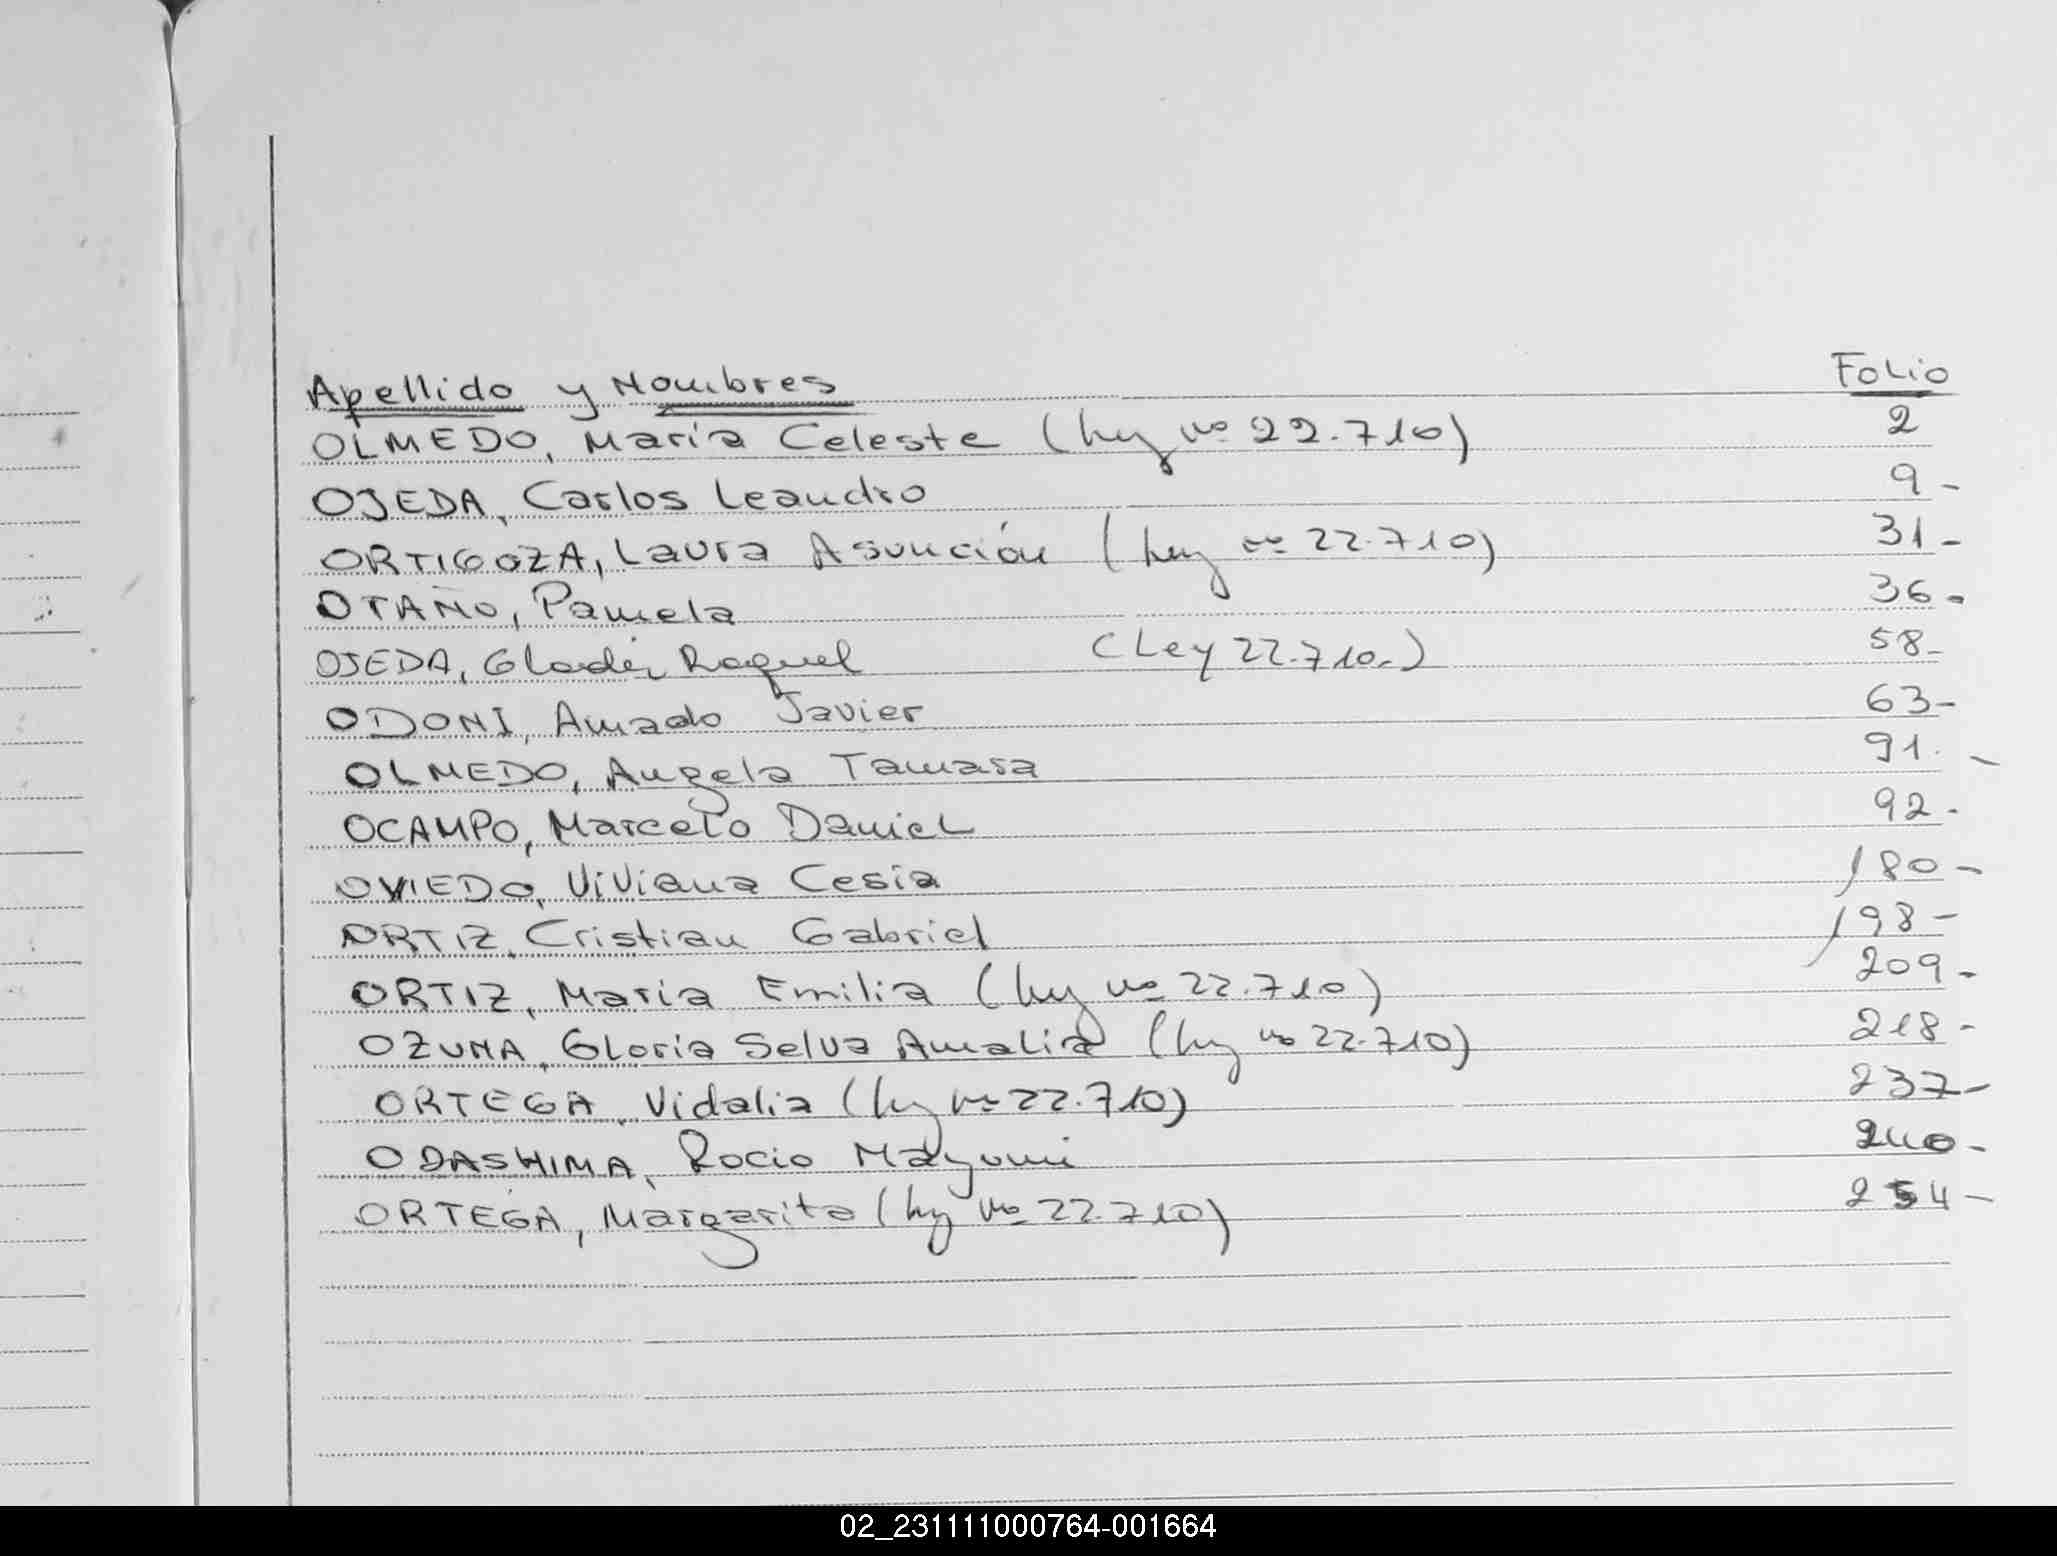 Apellido y Nombres Folio
OLMEDO, María Celeste (Ley nº 22.710) 2
OJEDA, Carlos Leandro 9-
ORTIGOZA, Laura Asunción (Ley nº 22.710) 31-
OTAÑO, Pamela 36-
OJEDA, Gladis Raquel (Ley 22.710.-) 58-
ODONI, Amado Javier 63-
OLMEDO, Angela Tamara 91.-
OCAMPO, Marcelo Daniel 92.
OVIEDO, Viviana Cesia 180-
ORTIZ, Cristian Gabriel 198-
ORTIZ, María Emilia (Ley nº 22.710) 209-
OZUNA, Gloria Selva Amalia (Ley nº 22.710) 218-
ORTEGA, Vidalia (Ley nº 22.710) 237-
ODASHIMA, Rocio Mayumi 240-
ORTEGA, Margarita (Ley nº 22.710) 254-
02_231111000764-001664